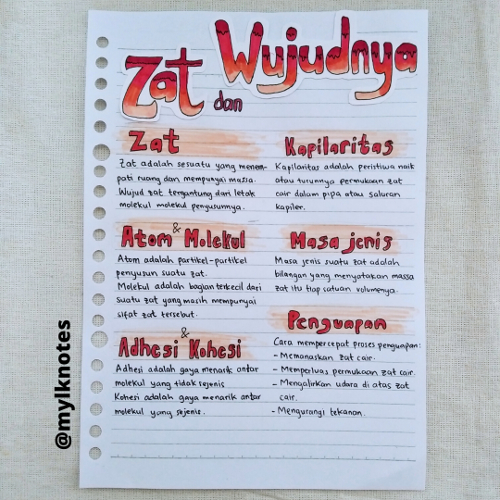 Zat dan Wujudnya
Zat
Zat adalah sesuatu yang menem-
pati ruang dan mempunyai massa.
Wujud zat tergantung dari letak
molekul molekul penyusunnya.
Atom & Molekul
Atom adalah partikel-partikel
penyusun suatu zat.
Molekul adalah bagian terkecil dari
suatu zat yang masih mempunyai
sifat zat tersebut.
Adhesi & Kohesi
Adhesi adalah gaya menarik antar
molekul yang tidak sejenis
Kohesi adalah gaya menarik antar
molekul yang sejenis.
Kapilaritas
Kapilaritas adalah peristiwa naik
atau turunnya permukaan zat
cair dalam pipa atau saluran
kapiler.
Masa jenis
Masa jenis suatu zat adalah
bilangan yang menyatakan massa
zat itu tiap satuan volumenya.
Penguapan
Cara mempercepat proses penguapan:
- Memanaskan zat cair.
- Memperluas permukaan zat cair.
- Mengalirkan udara di atas zat
cair.
- Mengurangi tekanan.
@mylknotes